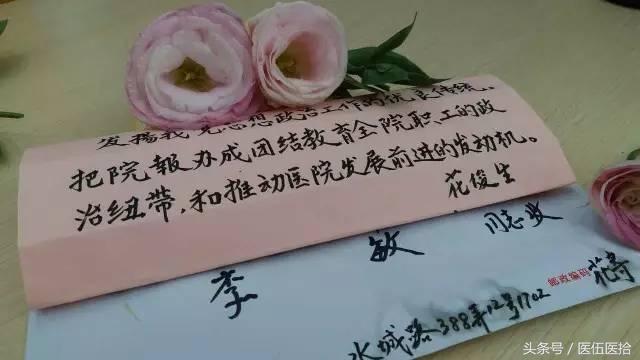 发扬我党思想政治工作的优良传统。
把院報办成团结教育全院职工的政
治纽带，和推动医院发展前进的发动机。
花俊生
李 敏 同志收
邮政编码 花寄
水城路388弄12号1702
头条号 / 医伍医拾